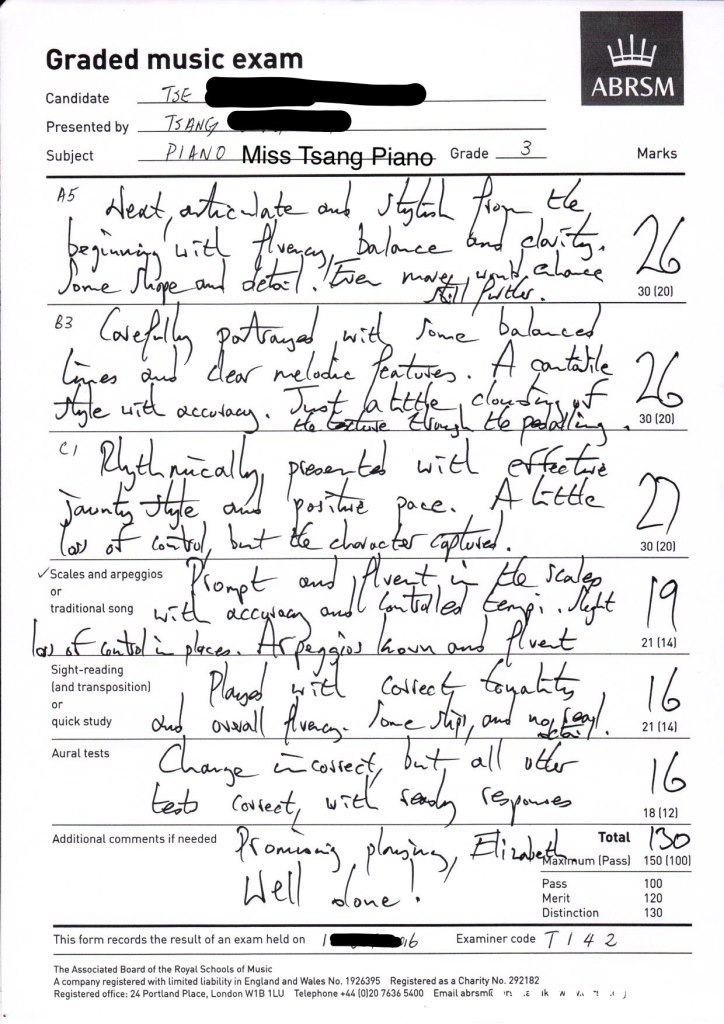 Graded music exam
ABRSM
Candidate TSE
Presented by TSANG
Subject PIANO Miss Tsang Piano Grade 3 Marks
A5 Neat, articulate and stylish from the
beginning with fluency, balance and clarity.
Some shape and detail. Even more would enhance
still further.
26
30 (20)
B3 Carefully portrayed with some balanced
lines and clear melodic features. A cantabile
style with accuracy. Just a little clouding of
the texture through the pedalling.
26
30 (20)
C1 Rhythmically presented with effective
jaunty style and positive pace. A little
loss of control, but the character captured.
27
30 (20)
✓Scales and arpeggios
or
traditional song
Prompt and fluent in the scales
with accuracy and controlled tempi. Slight
loss of control in places. Arpeggios known and fluent
19
21 (14)
Sight-reading
(and transposition)
or
quick study
Played with correct tonality
and overall fluency. Some slips, and no real
detail.
16
21 (14)
Aural tests
Change incorrect, but all other
tests correct, with ready responses
16
18 (12)
Additional comments if needed
Promising playing, Elizabeth.
Well done!
Total 130
Maximum (Pass) 150 (100)
Pass 100
Merit 120
Distinction 130
This form records the result of an exam held on 1 16 Examiner code T 1 4 2
The Associated Board of the Royal Schools of Music
A company registered with limited liability in England and Wales No. 1926395 Registered as a Charity No. 292182
Registered office: 24 Portland Place, London W1B 1LU Telephone +44 (0)20 7636 5400 Email abrsm@